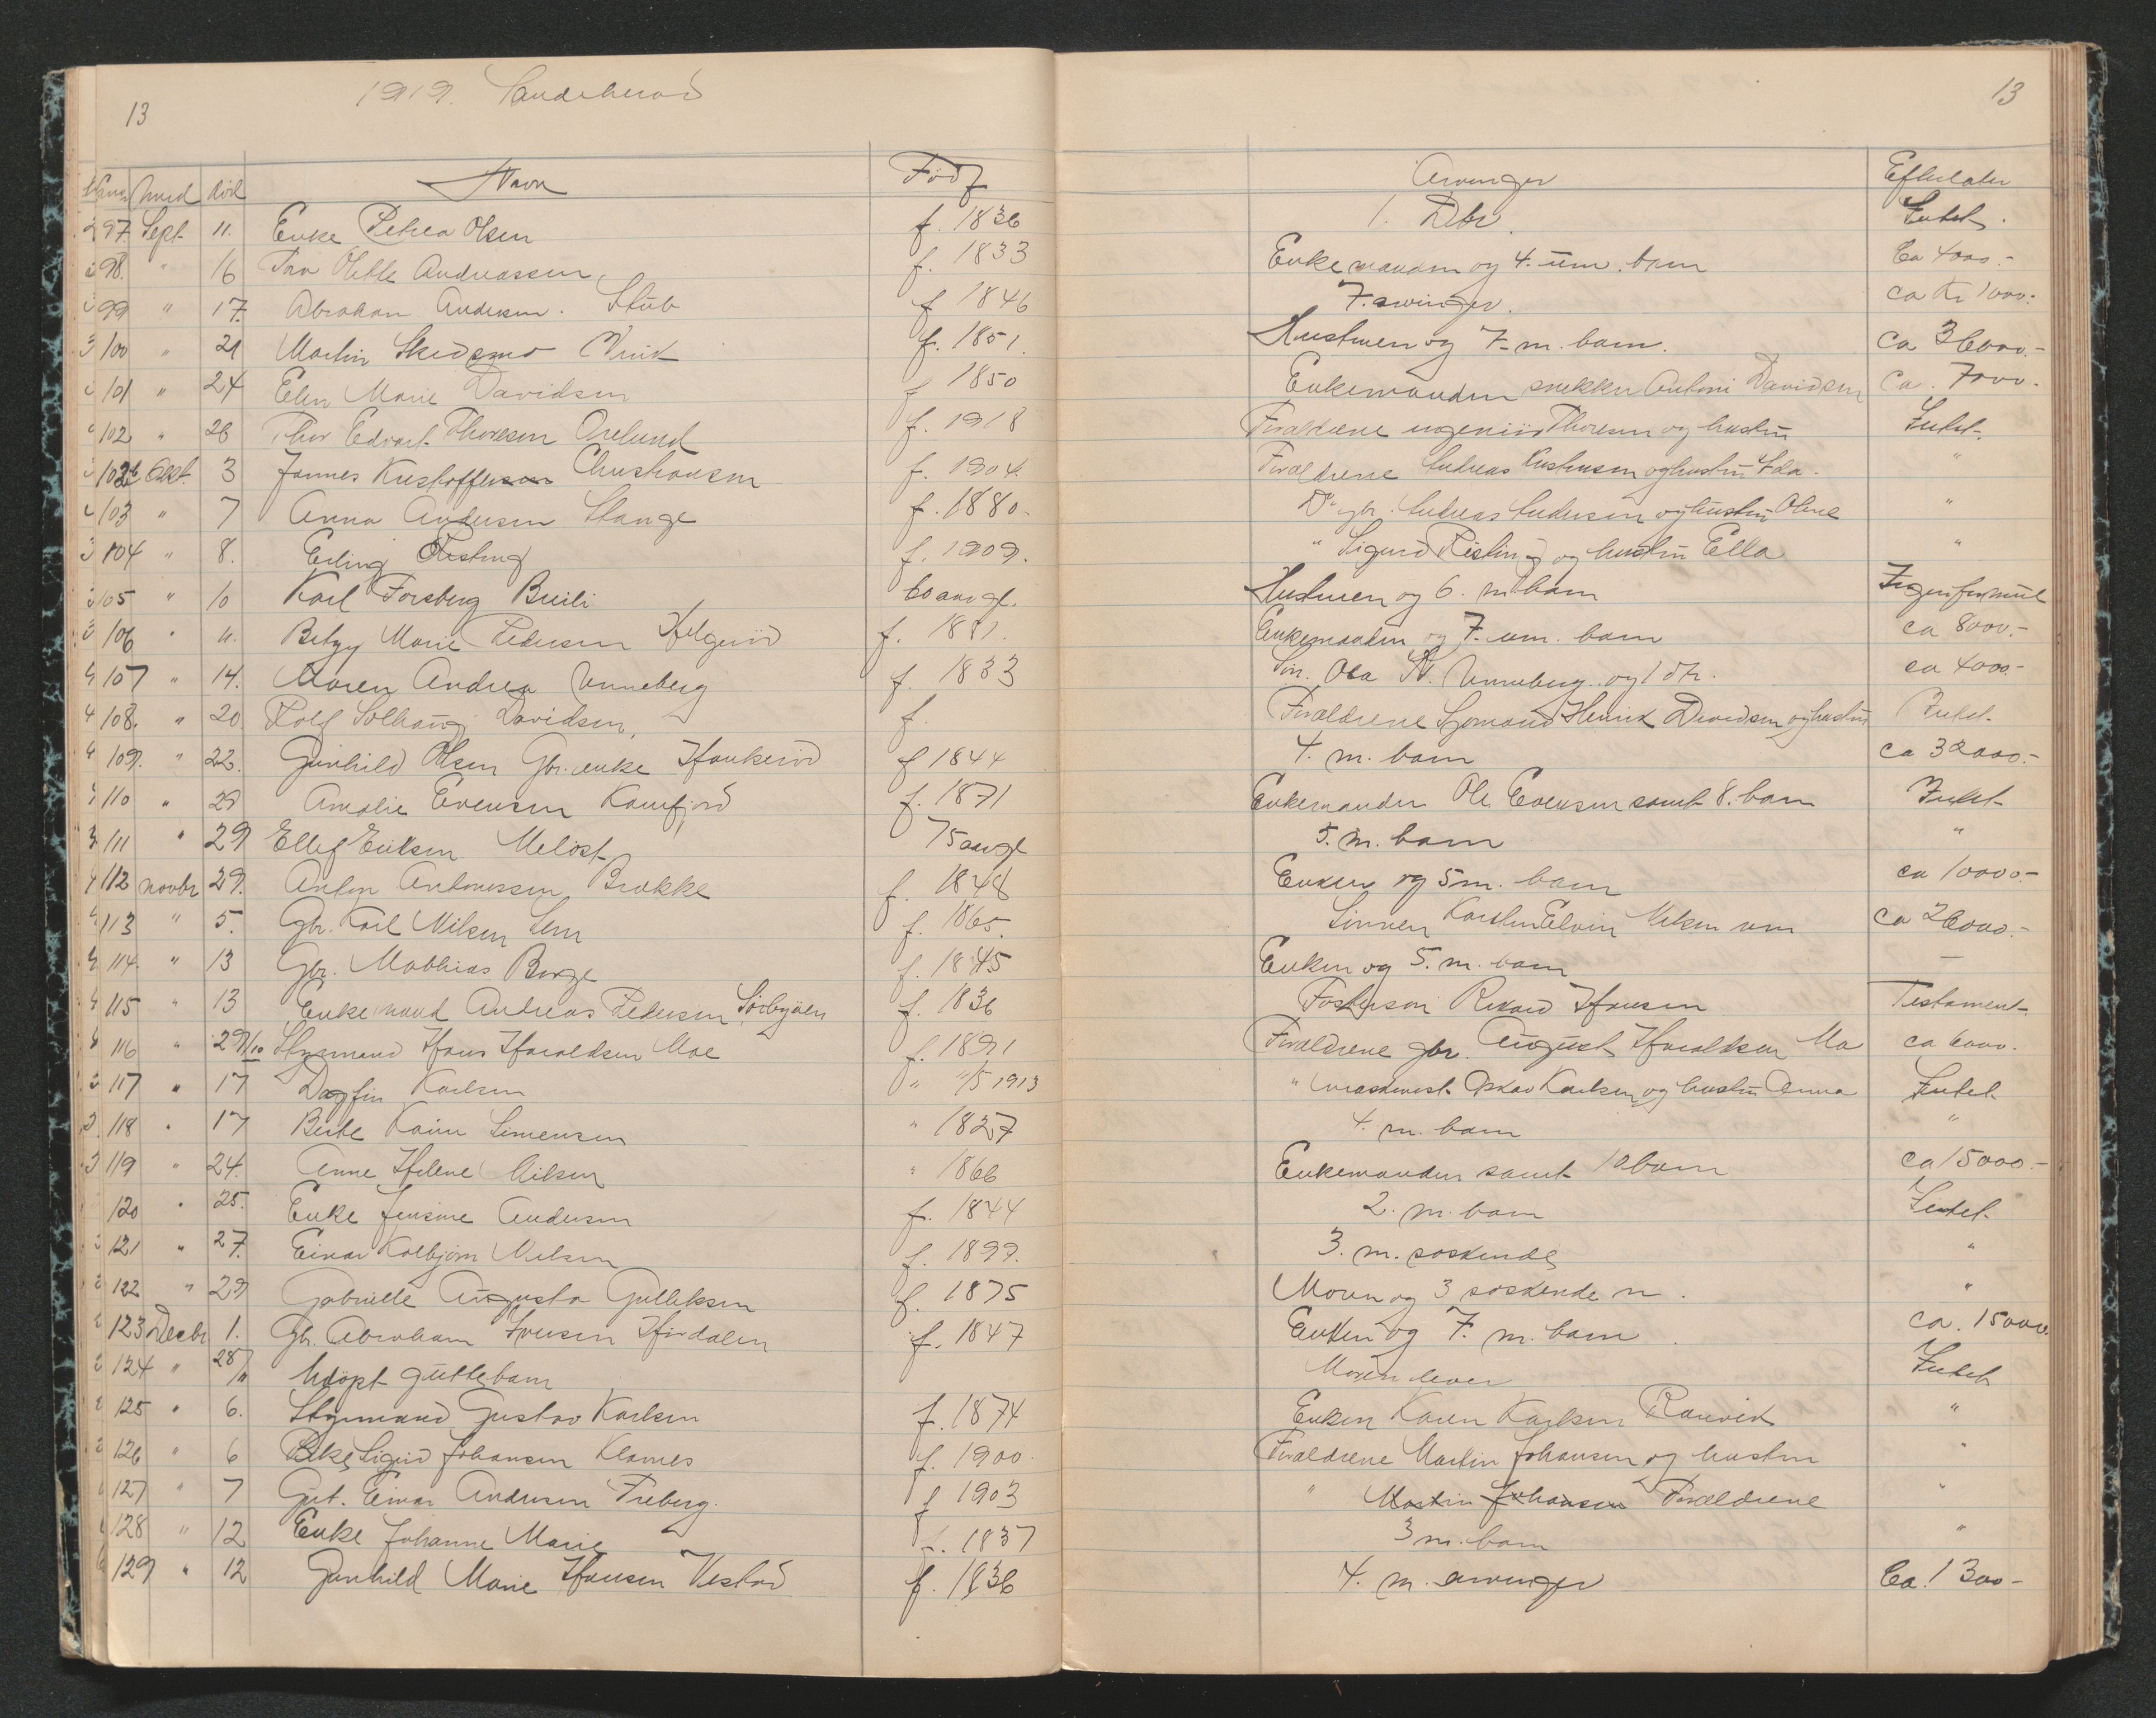 1919. Sandeherad
13
13
Num
Mnd
död
Navn
Född
Arvinger
Efterlater
97. Sept 11. Enke Petrea Olsen f. 1836 1. Dtr. Intet.
98. " 16 Fru Olette Andreassen, f. 1833 Enkemanden og 4. um. barn Ca 4000.-
99 " 17. Abraham Andersen. Stub f 1846 7. arvinger. ca Kr 1000.-
100 " 21 Martin Skedsmo Virik f. 1851. Hustruen og 7 m. barn. ca 36000.-
101 " 24 Elen Marie Davidsen f 1850 Enkemanden snekker Antoni Davidsen Ca. 7000.-
102 " 26 Thor Edvart Thoresen Orelund f. 1918 Foreldrene ingeniör Thoresen og hustru Intet.
102b Okt. 3 Johannes Kristoffersen Christiansen f. 1904. Foreldrene Andreas Kristiansen og hustru Ida. "
103 " 7 Anna Andersen Stange f. 1880. Do gbr. Andreas Andersen og hustru Oline "
104 " 8. Erling Risting f. 1909. " Sigurd Risting og hustru Ella "
105 " 10 Karl Forsberg Bueli 60 aar gl. Hustruen og 6. m. barn Ingen formue
106 " 11. Betzy Marie Pedersen Helgerød f. 1881. Enkemanden og 7. um. barn ca 8000.-
107 " 14. Maren Andrea Unneberg f. 1833 Sön. Ola Kr. Unneberg. og 1 dtr. ca 4000.-
108. " 20. Rolf Solhaug Davidsen, f. Foreldrene Sjömand Henrik Davidsen og hustru Intet.
109. " 22. Gunhild Olsen Gbr. enke Haukeröd f 1844 4. m. barn ca 32000.-
110 " 29 Amalie Evensen Kamfjord f. 1871 Enkemanden Ole Evensen samt 8. barn Intet
111 " 29 Ellef Eriksen Melöst 75 aar gl 5. m. barn "
112 novbr 29. Anton Antonissen Brekke f. 1848 Enken og 5 m. barn ca 10000.-
113 " 5. Gbr. Karl Nilsen Sem f. 1865. Sönnen Karsten Elvin Nilsen um ca 26000.-
114 " 13 Gbr. Mathias Borge f. 1845 Enken og 5. m. barn —
115 " 13 Enkemand Andreas Pedersen Sörbyöen f. 1836 Fostersön Rikard Hansen Testament.
116 " 29/10 Styrmand Hans Haraldsen Moe f. 1891 Foreldrene gbr. August Haraldsen Mo ca 6000.
117 " 17 Dagfin Karlsen " 11/5 1913 " maskinist Oskar Karlsen og hustru Anna Intet.
118 " 17 Berte Karine Simensen " 1827 4. m. barn "
119 " 24. Anne Helene Nilsen " 1866 Enkemanden samt 10 barn ca 15000.-
120 " 25. Enke Jensine Andersen f. 1844 2. m. barn Intet.
121 " 27. Einar Kolbjörn Nilsen f. 1899. 3. m. söskende "
122 " 29 Gabrielle Augusta Gulliksen f. 1875 Moren og 3 söskende m. "
123 Decbr 1. Gbr. Abraham Iversen Hjerdalen f. 1847 Enken og 7. m. barn ca. 15000.
124 " 28/11 Udöpt guttebarn Moren lever Intet
125 " 6. Styrmand Gustav Karlsen f. 1874 Enken Karen Karlsen Ranvik "
126 " 6 Pike Sigrid Johansen Klavnes f. 1900. Foreldrene Martin Johansen og hustru "
127 " 7 Gut. Einar Andersen Freberg. f 1903 " Martin Johansen Foreldrene "
128 " 12 Enke Johanne Marie f. 1837 3 m. barn "
129 " 12 Gunhild Marie Hansen Vestad f. 1836 4. m. arvinger Ca. 1300-